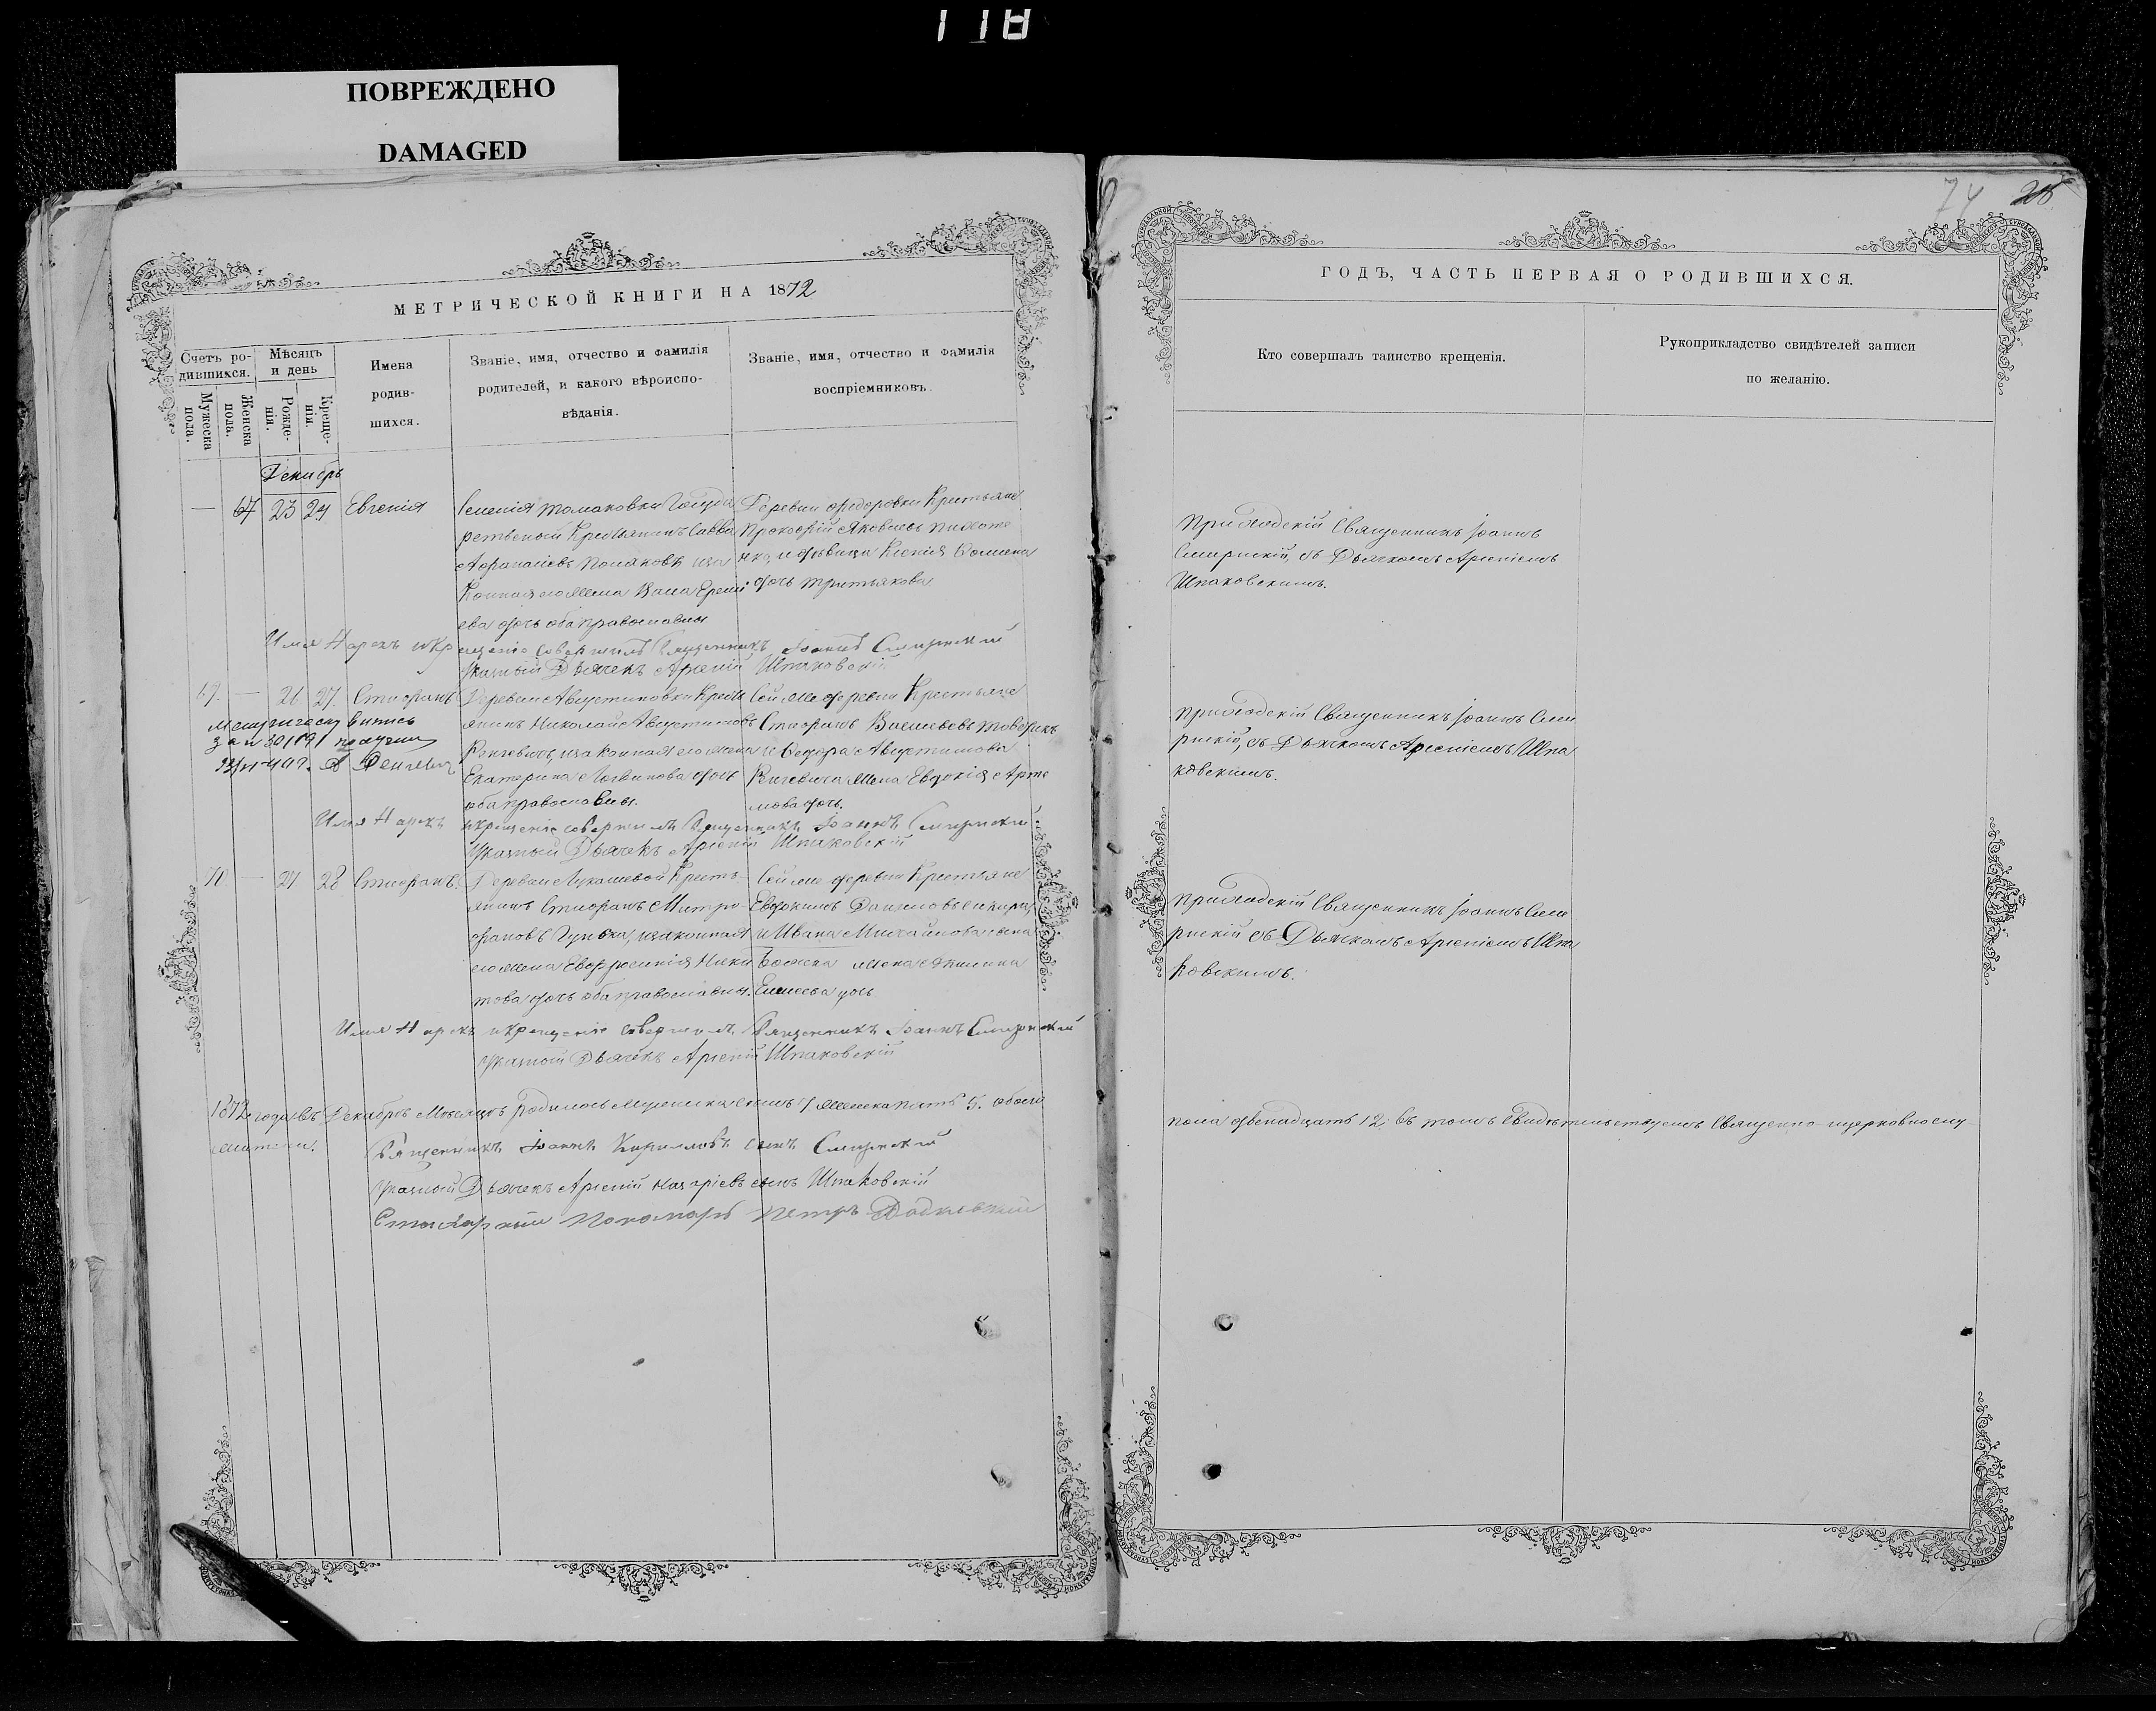 118
ПОВРЕЖДЕНО
DAMAGED
74 28
МЕТРИЧЕСКОЙ КНИГИ НА 1872
ГОДЪ, ЧАСТЬ ПЕРВАЯ О РОДИВШИХСЯ.
Счетъ ро-
дившихся.
Мужеска
пола.
Женска
пола.
Мѣсяцъ
и день
Рожде-
нія.
Креще-
нія.
Имена
родив-
шихся.
Званіе, имя, отчество и фамилія
родителей, и какого вѣроиспо-
вѣданія.
Званіе, имя, отчество и фамилія
воспріемниковъ.
Кто совершалъ таинство крещенія.
Рукоприкладство свидѣтелей записи
по желанію.
Декабрь
— 67 23 24 Евгенія
Селенія Томаковки Госуда
рственый Крестьянинъ Савва
Афанасіевъ Поляковъ иза
Конная его жена Анна Ереми
ева дочь оба православны
Деревни Федоровки Крестьяне
Прокофій Яковлевъ
и девица Ксенія Фомина
дочь Третьякова
Приходскій Священникъ Іоаннъ
Смирнскій, съ Дьячкомъ Арсеніемъ
Шпаковскимъ.
Имя Нарекъ и Крещеніе совершилъ Священникъ Іоаннъ Смирнскій
Указный Дьячекъ Арсеній Шпаковскій
69. — 26 27. Стефанъ
Деревни Августиновки Кресть
янинъ Николай Августиновъ
изаконная его жена
Екатерина Логвинова дочь
оба православны.
Сей же деревни Крестьяне
Стефанъ Васильевъ
и Федора Августинова
жена Евдокія Арте
мова дочь.
Приходскій Священникъ Іоаннъ Сми
рнскій, съ Дьячкомъ Арсеніемъ Шпа
ковскимъ.
за № 301191 получилъ
Имя Нарекъ и крещеніе совершилъ Священникъ Іоаннъ Смирнскій
Указный Дьячекъ Арсеній Шпаковскій
70 — 27 28 Стефанъ.
Деревни Лукашевой Кресть-
янинъ Стефанъ Митро-
фановъ изаконная
его жена Евфросинія Ники
това дочь оба православны.
Сей же деревни Крестьяне
Евдокимъ Даниловъ
и Ивана Михайлова сына
жена Акилина
Елисеева дочь
Приходскій Священникъ Іоаннъ Сми
рнскій съ Дьячкомъ Арсеніемъ Шпа
ковскимъ.
Имя Нарекъ и крещеніе совершилъ Священникъ Іоаннъ Смирнскій
Указный Дьячекъ Арсеній Шпаковскій
1872 года въ Декабрѣ Мѣсяцѣ Родилось Мужеска семь 7 Женска пять 5. обоего
пола двенадцать 12. въ томъ свидѣтельствуемъ Священно-церковнослу-
жители.
Священникъ Іоаннъ Кирилловъ сынъ Смирнскій
Указный Дьячекъ Арсеній Назаріевъ сынъ Шпаковскій
Пономарь Петръ